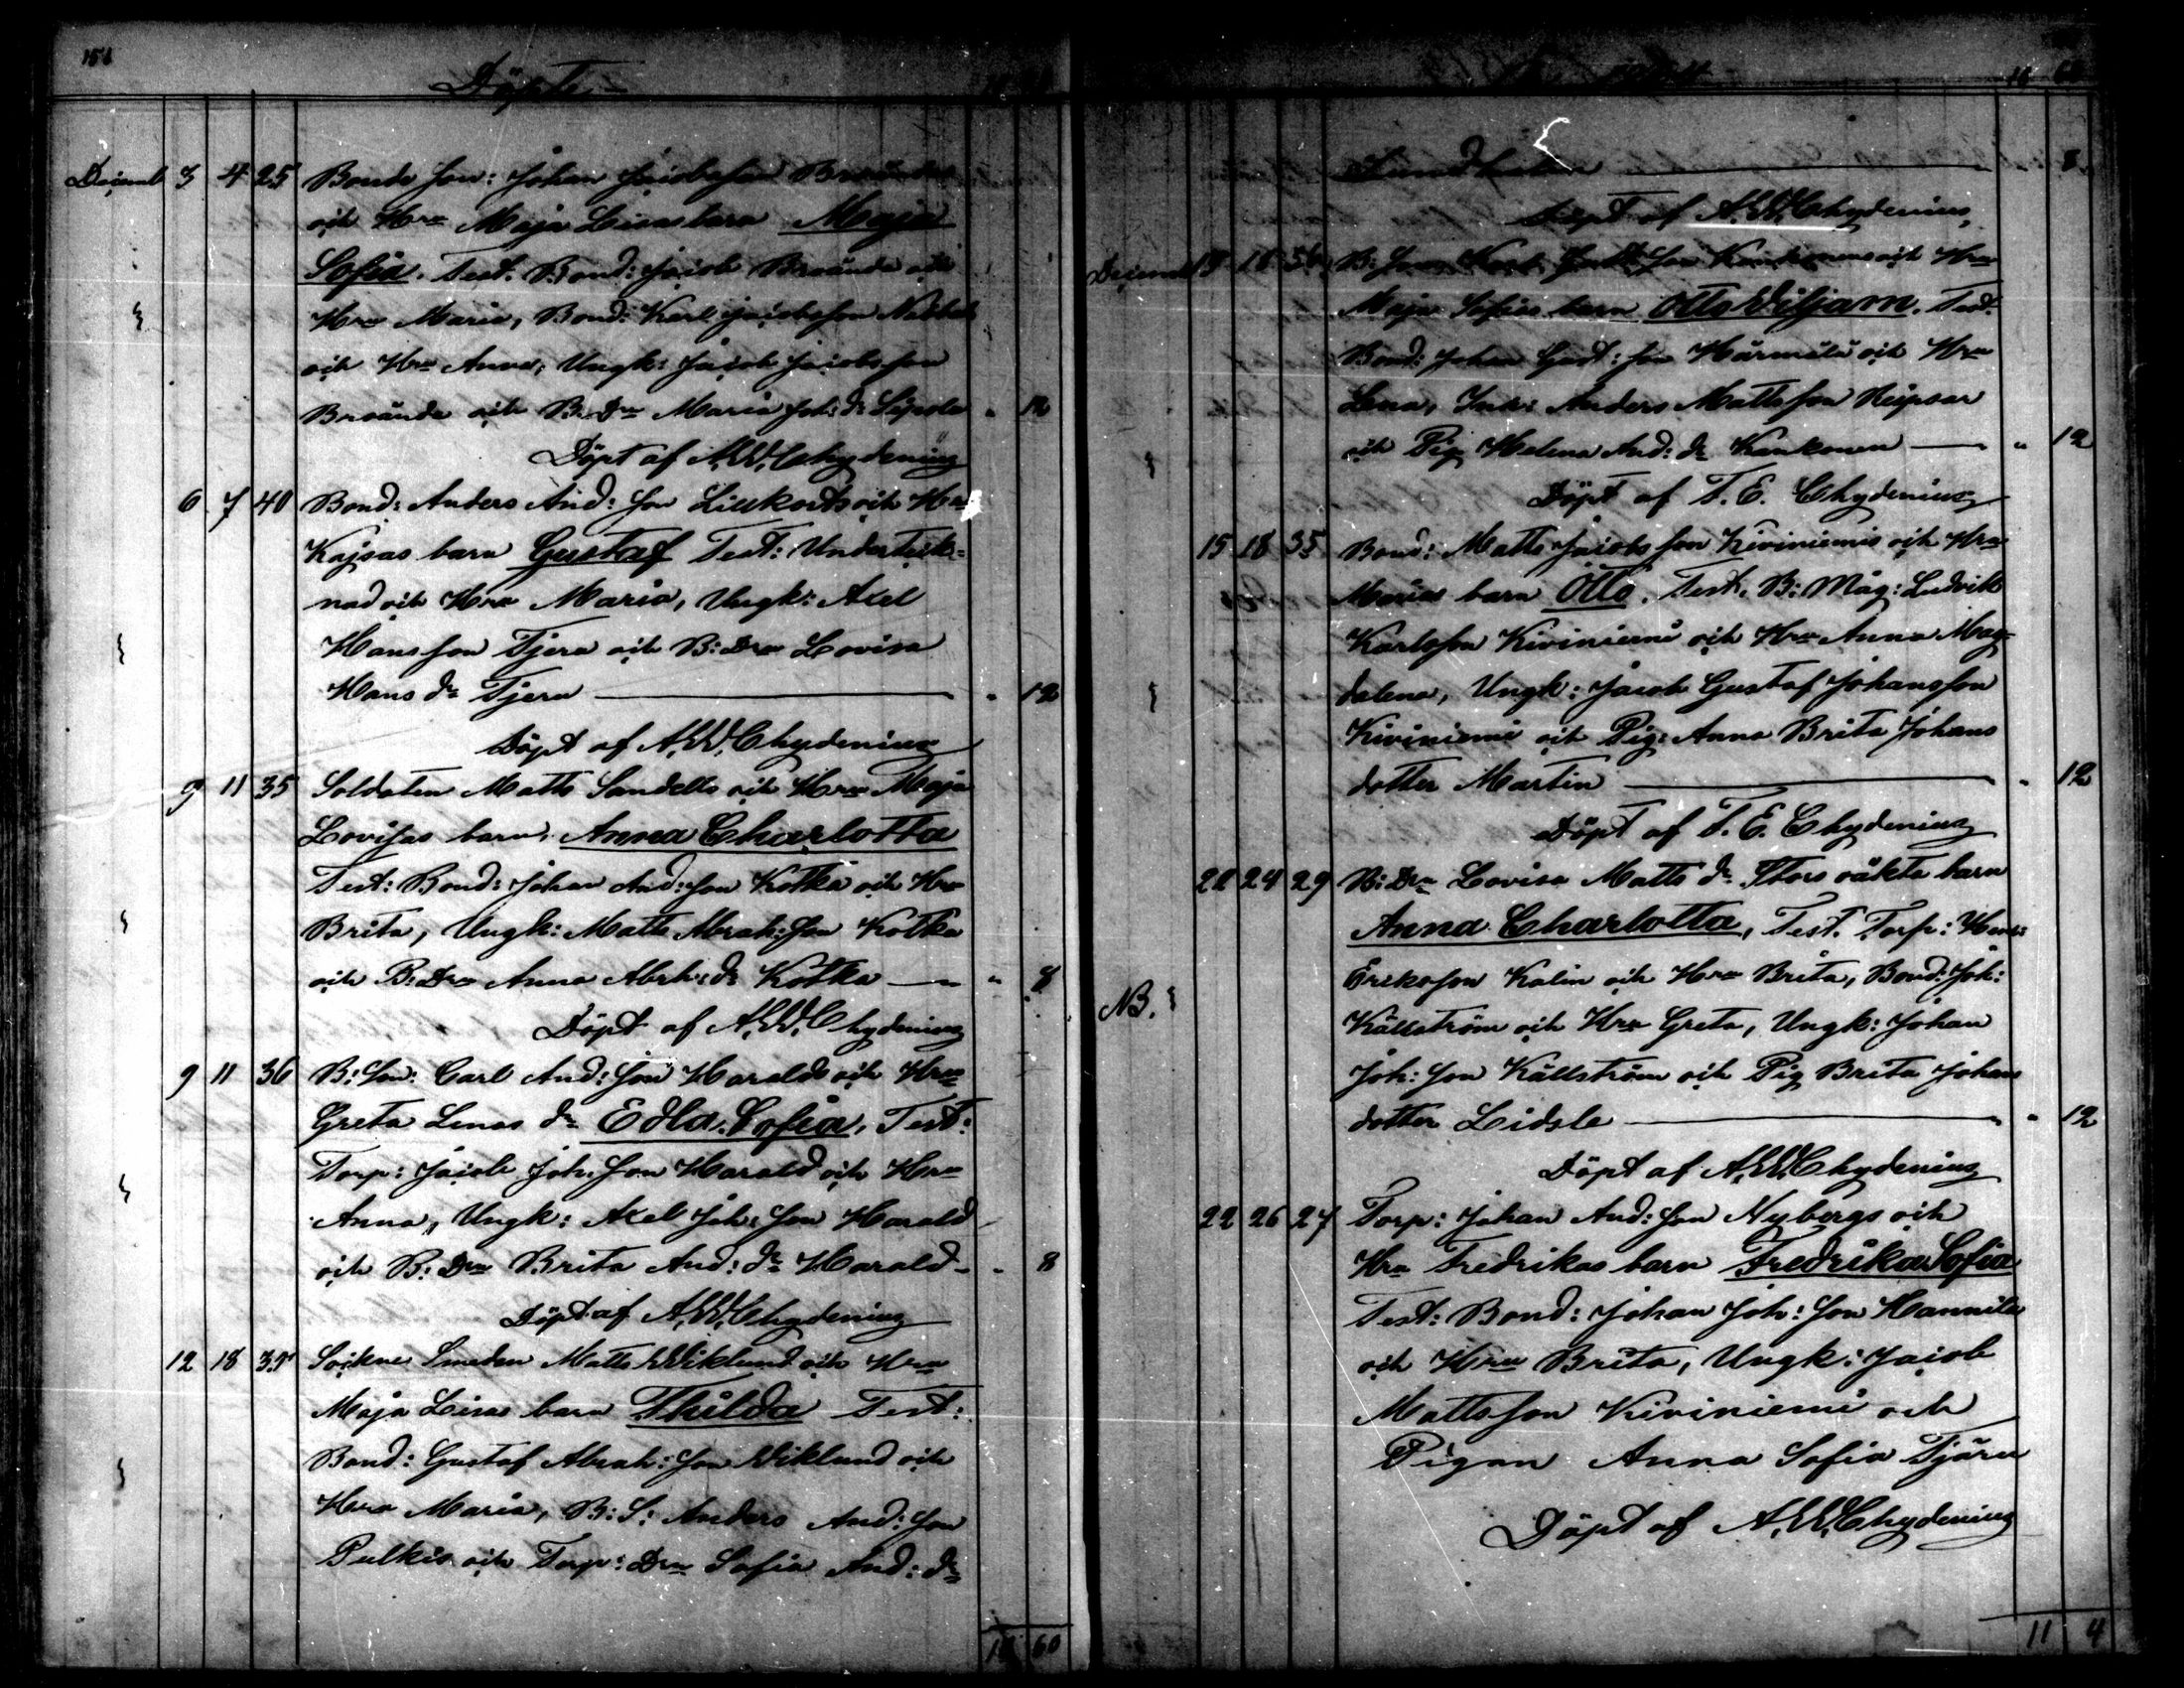 156
Döpte
Decemb 3 4 25 Bonde Son: Johan Jacobsson Braända
och Hru Maja Lisas barn Maja
Sofia. Test. Bond: Jacob Braända och
Hru Maria, Bond: Karl Jacobsson
och Hru Anna, Ungk: Jacob Jacobsson
Braända och B. Dr Maria Joh: dr Sipola " 12
Döpt af A.W. Chydenius
6 7 40 Bond: Anders And: son Lillkorts och Hru
Kajsas barn Gustaf Test: Underteck-
nad och Hru Maria, Ungk: Axel
Hansson Tjera och B: Dr Lovisa
Hans dr Tjera " 12
Döpt af A.W. Chydenius
9 11 35 Soldaten Matts Sandells och Hru Maja
Lovisas barn, Anna Charlotta
Test: Bond: Johan And: son Kotka och Hru
Brita, Ungk: Matts Abrah: son Kotka
och B: Dr Anna Abrh: dr Kotka " 8
Döpt af A.W. Chydenius
9 11 36 B: Son: Carl And: son Haralds och Hru
Greta Lenas dr Edla Sofia, Test:
Torp: Jacob Joh. son Harald och Hru
Anna, Ungk: Axel Joh: son Harald
och B: Dr Brita And: dr Harald " 8
Döpt af A.W. Chydenius
12 18 35 Sockne Smeden Matts Wiklund och Hru
Maja Lisas barn Thilda Test:
Bond: Gustaf Abrah: son Wiklund och
Hru Maria, B: S: Anders And: son
Pulkis och Torp: Dr Sofia And: dr
60
8
Döpt af A.W. Chydenius
Decemb 13 16 B: Son Gust: son Kankonens och Hru
Maja Sofias barn Otto Viljam. Test.
Bond: Johan Gust: son Härmälä och Hru
Lena, Inh: Anders Mattsson Riipsar
och Pig Helena And: dr Kankonen " 12
Döpt af F. E. Chydenius
15 18 35 Bond: Matts Jacobsson Kiviniemis och Hru
Marias barn Otto. Test. B: Måg: Ludvik
Karlsson Kiviniemi och Hru Anna Mag-
dalena, Ungk: Jacob Gustaf Johansson
Kiviniemi och Pig: Anna Brita Johans
dotter Martin " 12
Döpt af F. E. Chydenius
22 24 29 B: Dr Lovisa Matts dr Stors oäkta barn
Anna Charlotta, Test. Torp: Henr:
Eriksson Kalin och Hru Brita, Bond: Joh:
NB. Källström och Hru Greta, Ungk: Johan
Joh: son Källström och Pig Brita Johans
dotter Lidsle " 12
Döpt af A.W. Chydenius
22 26 27 Torp: Johan And: son Nybergs och
Hru Fredrikas barn Fredrika Sofia
Test: Bond: Johan Joh: son Hannila
och Hru Brita, Ungk: Jacob
Mattsson Kiviniemi och
Pigan Anna Sofia Tjäru
Döpt af A.W. Chydenius
11 4